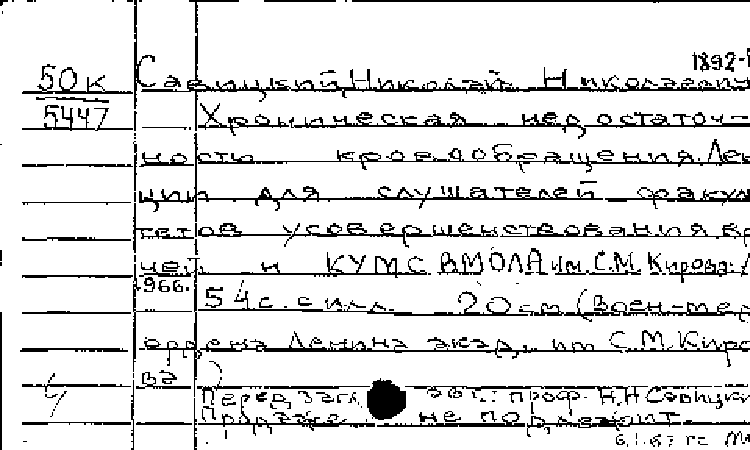 1892-
50к Савицкий, Николай Николаевич
5447 Хроническая недостаточ-
ность кровообращения. Лек
ции для слушателей факуль
тетов усовершенствования вра
чей и КУМС ВМОЛА им. С.М. Кирова. Л
.966. 54 с. с илл. 20 см (Воен-мед
ордена Ленина акад. им С.М. Киро
ва)
Перед загл. авт.: проф. Н.Н Савицки
Продаже не подлежит.